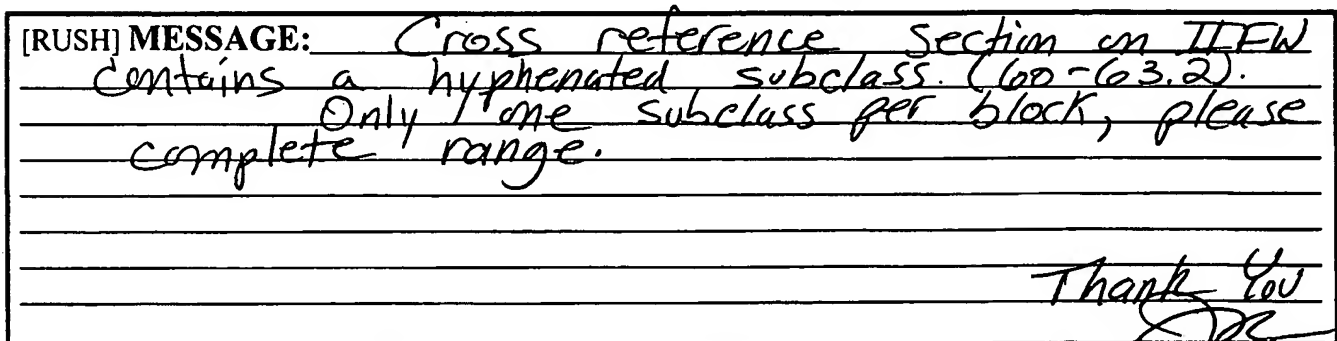 [RUSH] MESSAGE: Cross reference section on IIFW
contains a hyphenated subclass. (60-63.2).
Only 1 one subclass per block, please
complete range.
Thank You